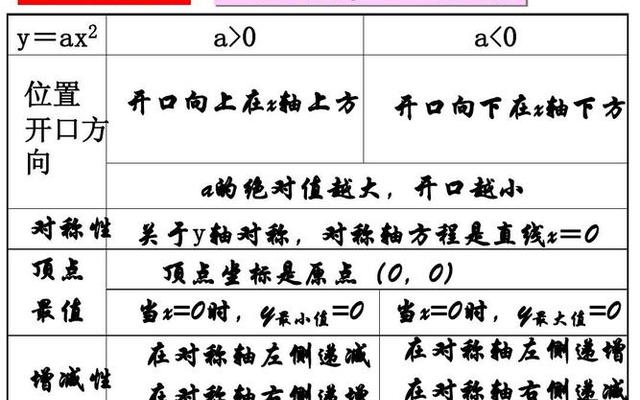 y＝ax² a>0 a<0
位置
开口方
向
开口向上在x轴上方 开口向下在x轴下方
a的绝对值越大，开口越小
对称性 关于y轴对称，对称轴方程是直线x＝0
顶点 顶点坐标是原点（0，0）
最值 当x=0时，y最小值=0 当x=0时，y最大值=0
增减性
在对称轴左侧递减 在对称轴左侧递增
在对称轴右侧递增 在对称轴右侧递减